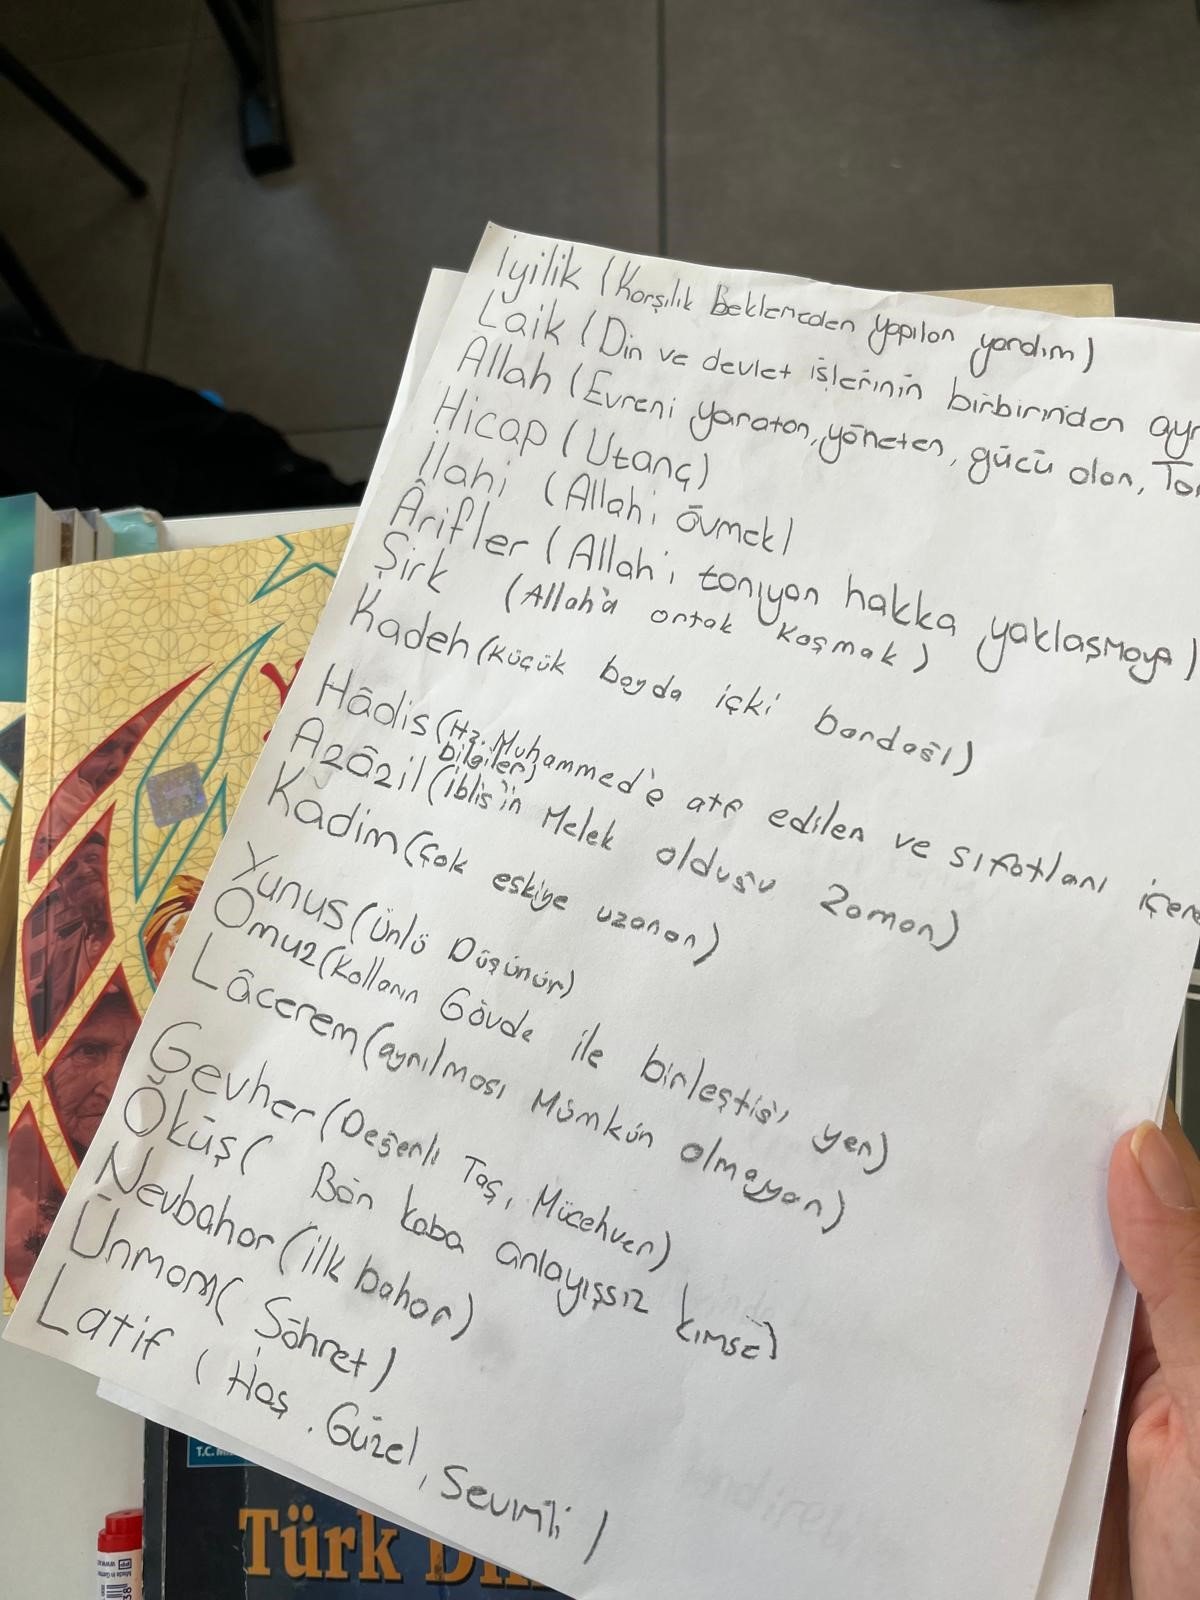 İyilik (Karşılık Beklemeden yapılan yardım)
Laik (Din ve devlet işlerinin birbirinden
Allah (Evreni yaratan, yöneten, gücü olan,
Hicap (Utanç)
İlahi (Allahı övmek)
Ârifler (Allah'ı tanıyan hakka yaklaşmaya)
Şirk (Allah'a ortak koşmak)
Kadeh (Küçük boyda içki bardağı)
Hâdis (Hz. Muhammed'e atf edilen ve sıfatlanı
bilgiler)
Azâzil (İblis'in Melek olduğu zaman)
Kadim (Çok eskiye uzanan)
Yunus (Ünlü Düşünür)
Omuz (Kolların Gövde ile birleştiği yer)
Lâcerem (ayrılması Mümkün olmayan)
Gevher (Değerli Taş, Mücehver)
Öküş ( Bön kaba anlayışsız kimse)
Nevbahar (ilk bahar)
Ünmam( Şöhret)
Latif ( Hoş, Güzel, Sevimli )
T.C.
Türk